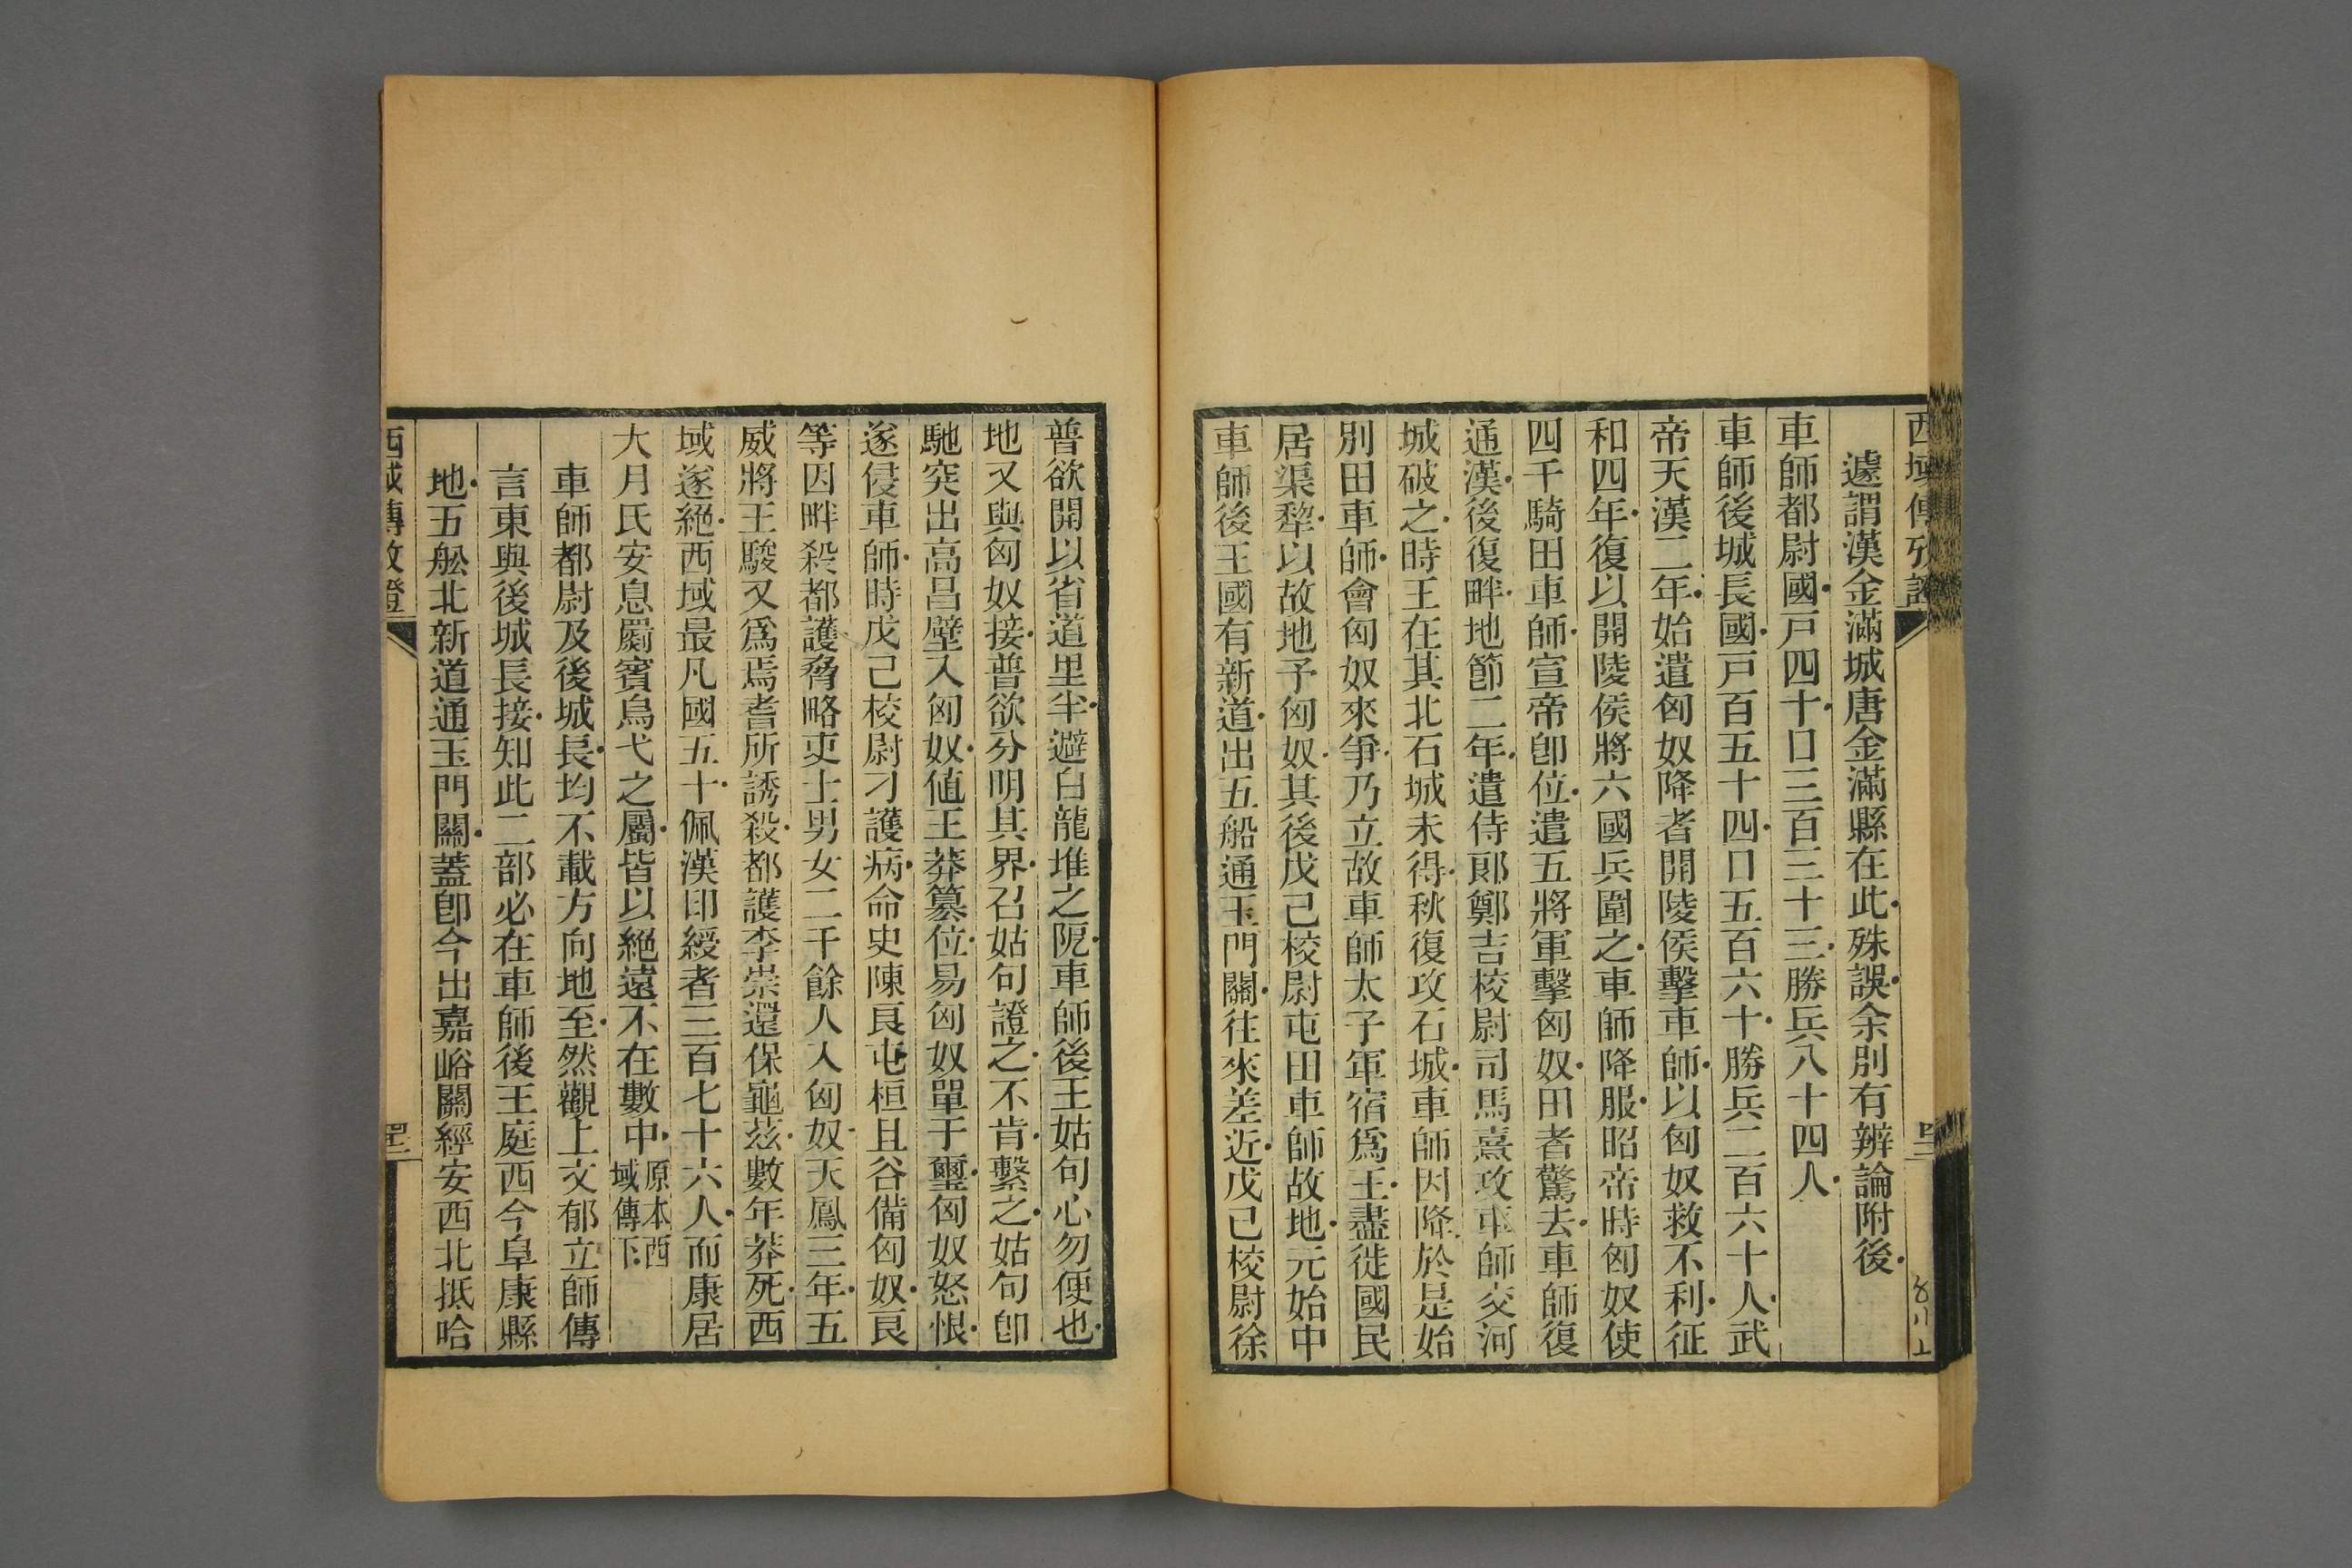 西域傳攷證
遽謂漢金滿城唐金滿縣在此殊誤余別有辨論附後
車師都尉國戸四十口三百三十三勝兵八十四人
車師後城長國戸百五十四口五百六十勝兵二百六十人武
帝天漢二年始遣匈奴降者開陵侯擊車師以匈奴救不利征
和四年復以開陵侯將六國兵圍之車師降服昭帝時匈奴使
四千騎田車師宣帝卽位遣五將軍擊匈奴田者驚去車師復
通漢後復畔地節二年遣侍郞鄭吉校尉司馬憙攻車師交河
城破之時王在其北石城未得秋復攻石城車師因降於是始
別田車師會匈奴來爭乃立故車師太子軍宿爲王盡徙國民
居渠犂以故地予匈奴其後戊己校尉屯田車師故地元始中
車師後王國有新道出五船通玉門關往來差近戊己校尉徐
普欲開以省道里半避白龍堆之阨車師後王姑句心勿便也
地又與匈奴接普欲分明其界召姑句證之不肯繫之姑句卽
馳突出高昌壁入匈奴値王莽簒位易匈奴單于璽匈奴怒恨
遂侵車師時戊己校尉刁護病命史陳良屯桓且谷備匈奴良
等因畔殺都護脅略吏士男女二千餘人入匈奴天鳳三年五
威將王駿又爲焉耆所誘殺都護李崇還保龜茲數年莽死西
域遂絕西域最凡國五十佩漢印綬者三百七十六人而康居
大月氏安息罽賓烏弋之屬皆以絕遠不在數中原本西域傳下
車師都尉及後城長均不載方向地至然觀上文郁立師傳
言東與後城長接知此二部必在車師後王庭西今阜康縣
地五舩北新道通玉門關蓋卽今出嘉峪關經安西北抵哈
西域傳攷證